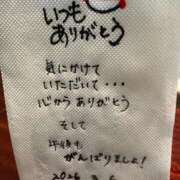 いつも
ありがとう
気にかけて
いただいて・・・
心から ありがとう
そして
がんばりましょ!
2026